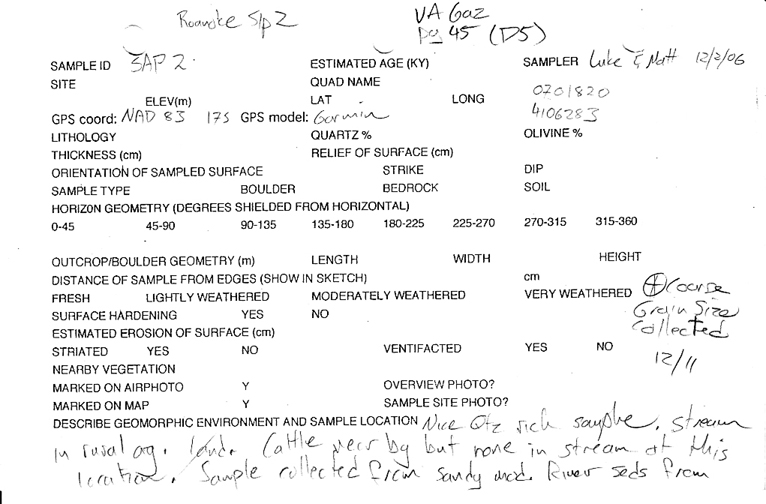 Roanoke S/p 2
VA Gaz
pg 45 (D5)
SAMPLE ID SAP 2 ESTIMATED AGE (KY) SAMPLER Luke & Matt 12/2/06
SITE QUAD NAME 0201820
ELEV(m) LAT LONG 4106283
GPS coord: NAD 83 17S GPS model: Garmin
LITHOLOGY QUARTZ % OLIVINE %
THICKNESS (cm) RELIEF OF SURFACE (cm)
ORIENTATION OF SAMPLED SURFACE STRIKE DIP
SAMPLE TYPE BOULDER BEDROCK SOIL
HORIZON GEOMETRY (DEGREES SHIELDED FROM HORIZONTAL)
0-45 45-90 90-135 135-180 180-225 225-270 270-315 315-360
OUTCROP/BOULDER GEOMETRY (m) LENGTH WIDTH HEIGHT
DISTANCE OF SAMPLE FROM EDGES (SHOW IN SKETCH) cm
FRESH LIGHTLY WEATHERED MODERATELY WEATHERED VERY WEATHERED
Coarse
Grain Size
Collected
12/11
SURFACE HARDENING YES NO
ESTIMATED EROSION OF SURFACE (cm)
STRIATED YES NO VENTIFACTED YES NO
NEARBY VEGETATION
MARKED ON AIRPHOTO Y OVERVIEW PHOTO?
MARKED ON MAP Y SAMPLE SITE PHOTO?
DESCRIBE GEOMORPHIC ENVIRONMENT AND SAMPLE LOCATION Nice Qtz rich sample. Stream
in rural ag. land. Cattle near by but none in stream at this
location. Sample collected from sandy mod. River seds from